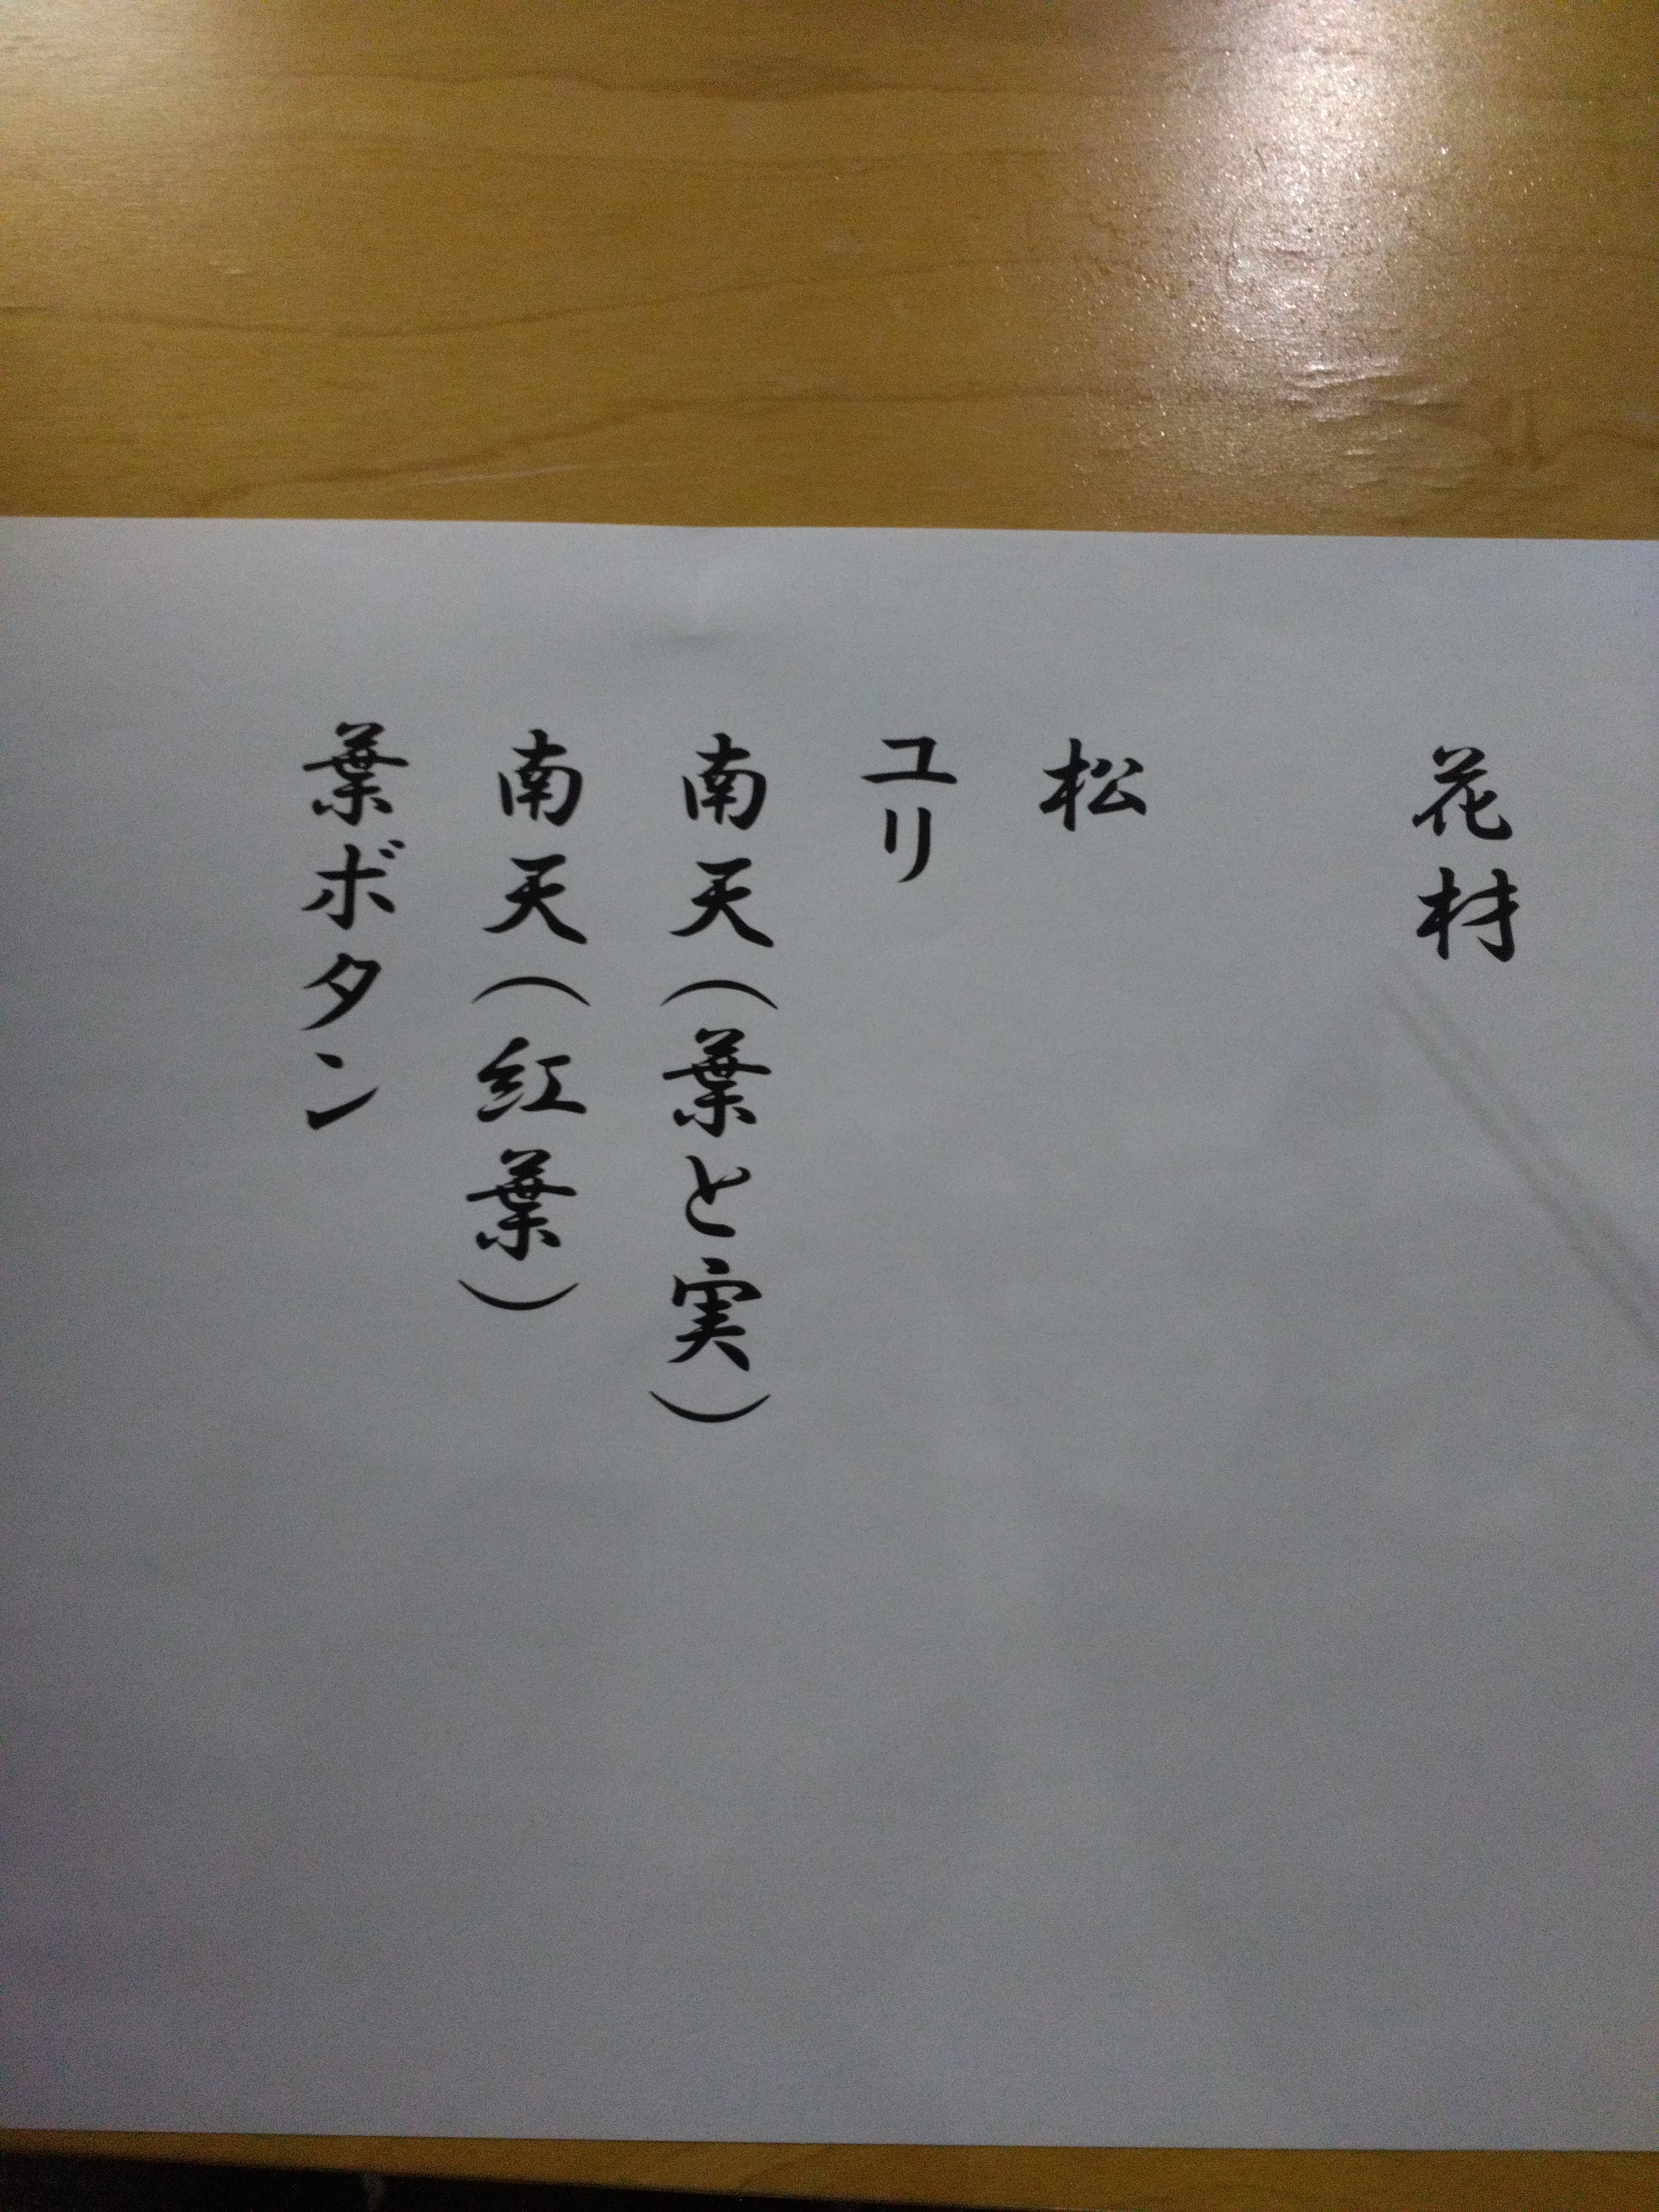 花材
松
ユリ
南天（葉と実）
南天（紅葉）
葉ボタン